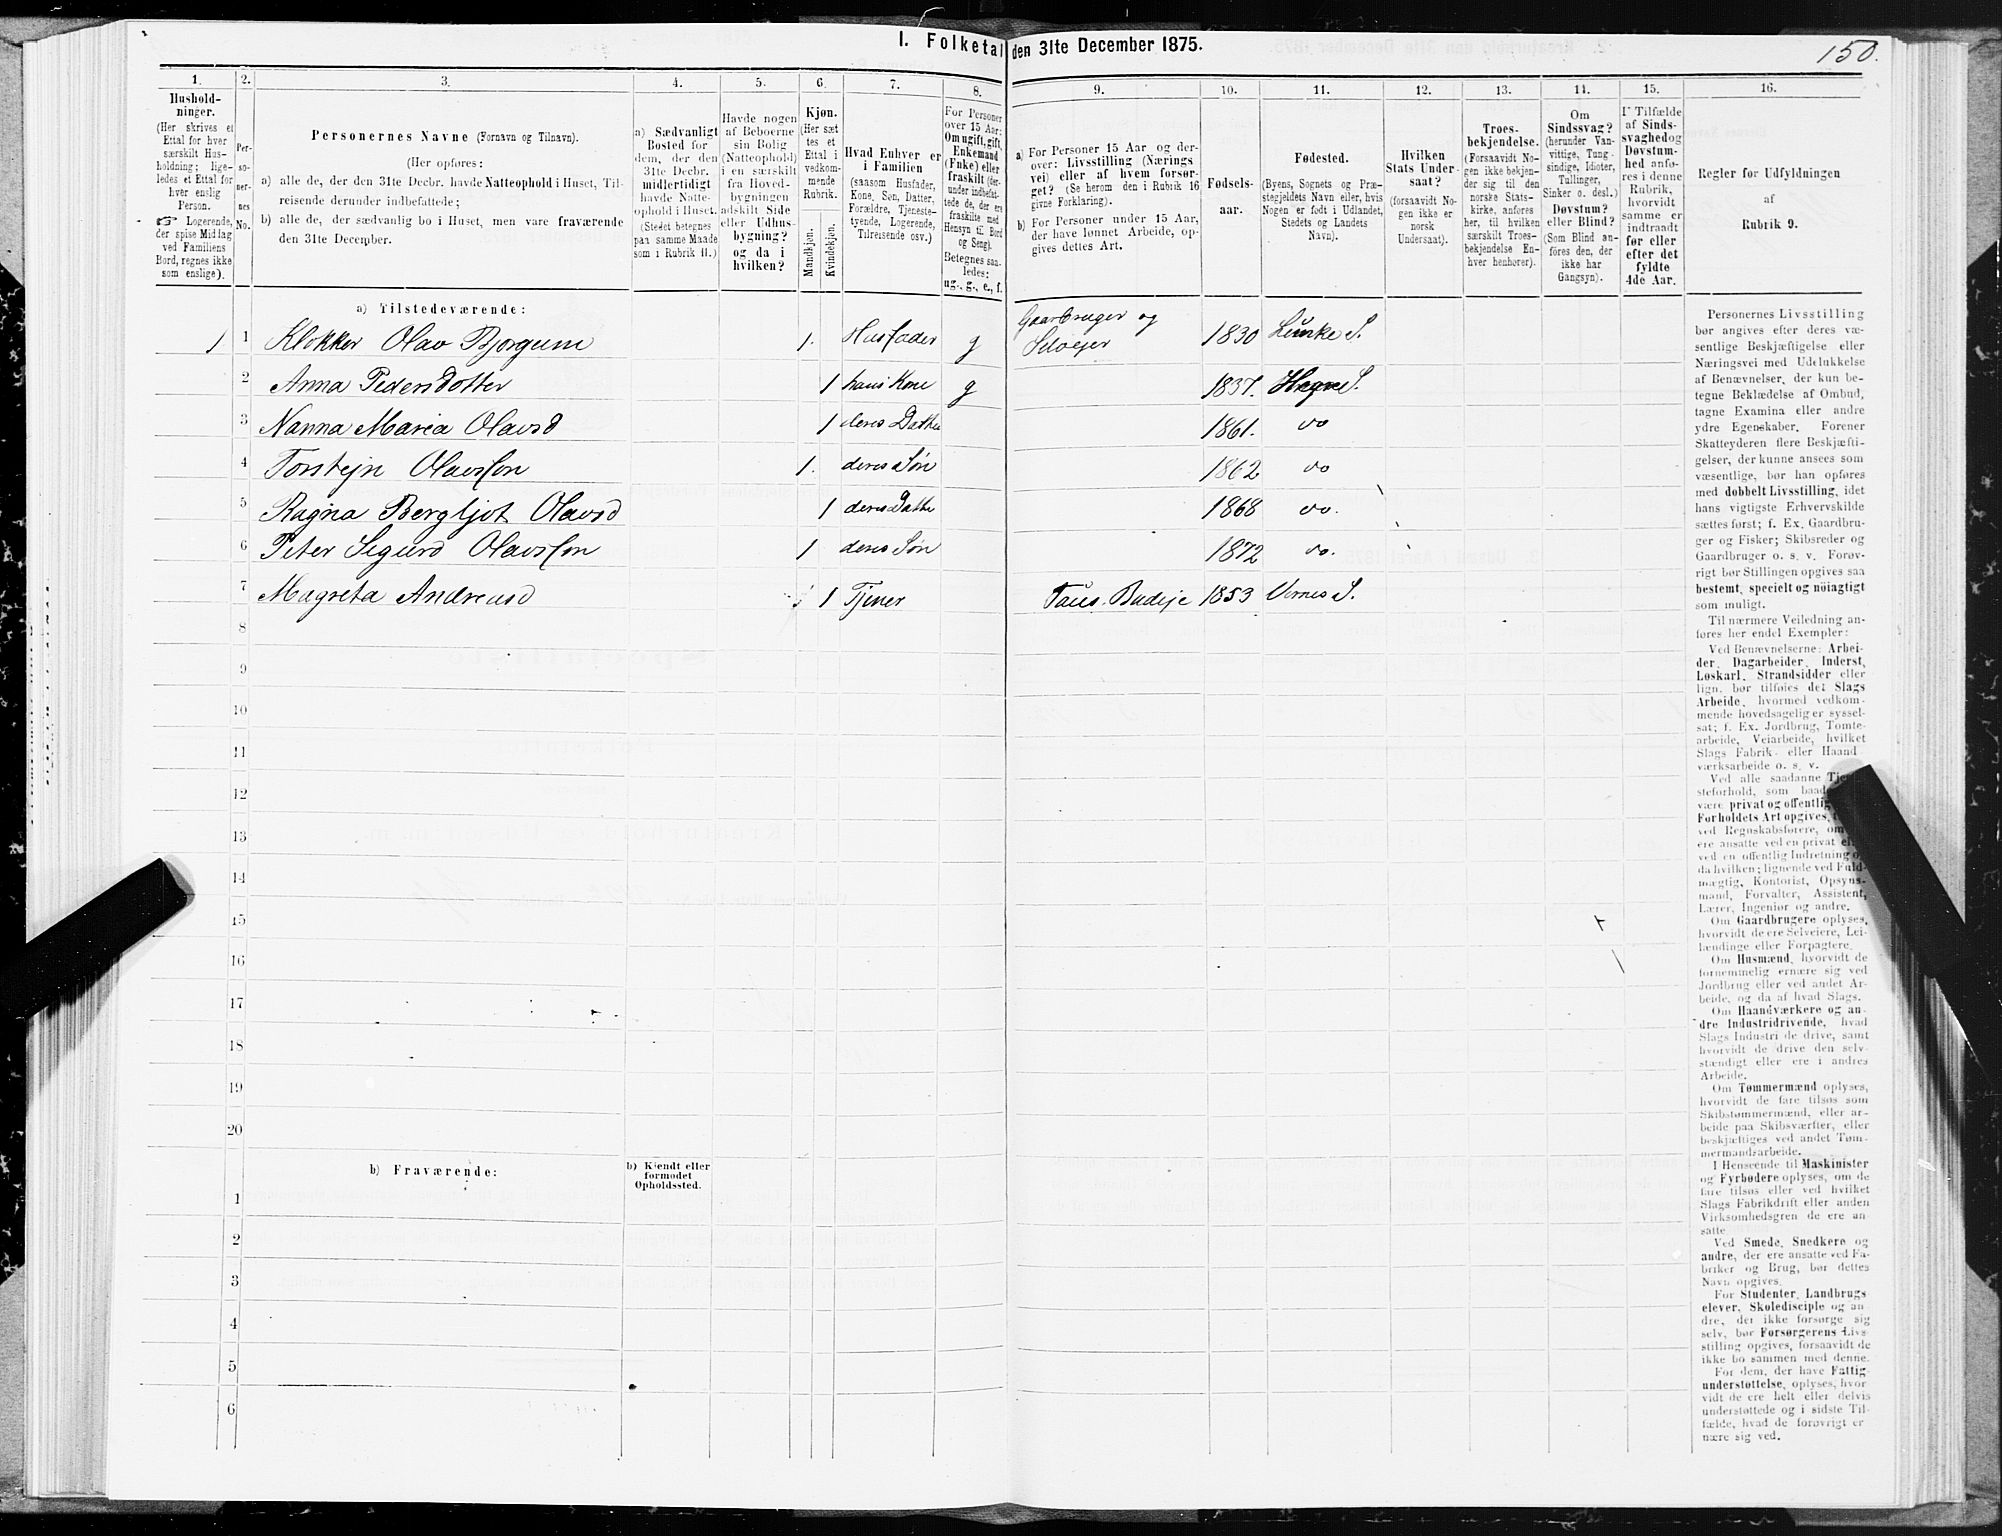 150.
I. Folketal den 31te December 1875.
1. 2. 3. 4. 5. 6. 7. 8. 9. 10. 11. 12. 13. 14. 15. 16.
Hushold-
ninger.
(Her skrives et
Ettal for hver
særskilt Hus-
holdning; lige-
ledes et Ettal for
hver enslig
Person.
☞ Logerende,
der spise Middag
ved Familiens
Bord, regnes ikke
som enslige).
Per-
so-
ner-
nes
No.
Personernes Navne (Fornavn og Tilnavn).
(Her opføres:
a) alle de, der den 31te Decbr. havde Natteophold i Huset, Til-
reisende derunder indbefattede;
b) alle de, der sædvanlig bo i Huset, men vare fraværende
den 31te December.
a) Sædvanligt
Bosted for
dem, der den
31te Decbr.
midlertidigt
havde Natte-
ophold i Huset.
(Stedet betegnes
paa samme Maade
som i Rubrik 11.)
Havde nogen
af Beboerne
sin Bolig
(Natteophold)
i en særskilt
fra Hoved-
bygningen
adskilt Side
eller Udhus-
bygning?
og da i
hvilken?
Kjøn.
(Her sæt
tes et
Ettal i
vedkom-
mende
Rubrik.
Mandkjøn.
Kvindekjøn.
Hvad Enhver er
i Familien
(saasom Husfader,
Kone, Søn, Datter,
Forældre, Tjeneste-
tyende, Logerende,
Tilreisende osv.)
For Personer
over 15 Aar:
Om ugift, gift,
Enkemand
(Enke) eller
fraskilt (der-
under indbefat-
tede de, der ere
fraskilte med
Hensyn til Bord
og Seng).
Betegnes saa-
ledes:
ug., g., e., f.
a) For Personer 15 Aar og der-
over: Livsstilling (Nærings
vei) eller af hvem forsør-
get? (Se herom den i Rubrik 16
givne Forklaring).
b) For Personer under 15 Aar,
der have lønnet Arbeide, op-
gives dettes Art.
Fødsels-
aar.
Fødested.
(Byens, Sognets og Præ-
stegjeldets Navn eller, hvis
Nogen er født i Udlandet,
Stedets og Landets
Navn).
Hvilken
Stats Under-
saat?
(forsaavidt No-
gen ikke er
norsk
Undersaat).
Troes-
bekjendelse.
(Forsaavidt No-
gen ikke bekjen-
der sig til den
norske Stats-
kirke, anføres
her, til hvilken
særskilt Troes-
bekjendelse En-
hver henhører).
Om
Sindssvag?
(herunder Van-
vittige, Tung-
sindige, Idioter,
Tullinger,
Sinker o. desl.)
Døvstum?
eller Blind?
(Som Blind an-
føres den, der
ikke har
Gangsyn).
I Tilfælde
af Sinds-
svaghed og
Døvstum-
hed anfø-
res i denne
Rubrik,
hvorvidt
samme er
indtraadt
før eller
efter det
fyldte
4de Aar.
Regler for Udfyldningen
af
Rubrik 9.
a) Tilstedeværende:
1 1 Klokker Olav Bjorgum 1. Husfader g Gaarbruger og Selvejer 1830 Lunke S.
2 Anna Pedersdotter 1 hans Kone g 1837. Hegre S.
3 Nanna Maria Olavsd 1 deres Datter 1861. do
4 Torstejn Olavsson 1. deres Søn 1862 do
5 Ragna Bergljot Olavsd 1 deres Datte 1868 do.
6 Peter Sigurd Olavsson 1 deres Søn 1872 do.
7 Magreta Andreasd 1 Tjener Faus. Budeje 1853 Vernes S.
8
9
10
11
12
13
14
15
16
17
18
19
20
b) Fraværende:
b) Kjendt eller
formodet
Opholdssted.
1
2
3
4
5
6
Personernes Livsstilling
bør angives efter deres væ-
sentlige Beskjæftigelse eller
Næringsvei med Udelukkelse
af Benævnelser, der kun be-
tegne Beklædelse af Ombud,
tagne Examina eller andre
ydre Egenskaber. Forener
Skatteyderen flere Beskjæfti-
gelser, der kunne ansees som
væsentlige, bør han opføres
med dobbelt Livsstilling, idet
hans vigtigste Erhvervskilde
sættes først; f. Ex. Gaardbru-
ger og Fisker; Skibsreder og
Gaardbruger o. s. v. Forøv-
rigt bør Stillingen opgives saa
bestemt, specielt og nøiagtigt
som muligt.
Til nærmere Veiledning an-
føres her endel Exempler:
Ved Benævnelserne: Arbei-
der, Dagarbeider, Inderst,
Løskarl, Strandsidder eller
lign. bør tilføies det Slags
Arbeide, hvormed vedkom-
mende hovedsagelig er syssel-
sat; f. Ex. Jordbrug, Tomte-
arbeide, Veiarbeide, hvilket
Slags Fabrik- eller Haand-
værksarbeide o. s. v.
Ved alle saadanne
steforhold, som
være privat og
Forholdets Art opgives,
ved Regnskabsførere,
ere ansatte ved en privat
ved en offentlig Indretning
da hvilken; lignende ved Fuld-
mægtig, Kontorist, Opsyns-
mand, Forvalter, Assistent,
Lærer, Ingeniør og andre.
Om Gaardbrugere oplyses,
hvorvidt de ere Selveiere, Lei-
lændinge eller Forpagtere.
Om Husmænd, hvorvidt de
fornemmelig ernære sig ved
Jordbrug eller ved andet Ar-
beide, og da af hvad Slags.
Om Haandværkere og an-
dre Industridrivende, hvad
Slags Industri de drive, samt
hvorvidt de drive den selv-
stændigt eller ere i andres
Arbeide.
Om Tømmermænd oplyses,
hvorvidt de fare tilsøs som
Skibstømmermænd, eller ar-
beide paa Skibsværfter, eller
beskjæftiges ved andet Tøm-
mermandsarbeide.
I Henseende til Maskinister
og Fyrbødere oplyses, om de
fare tilsøs eller ved hvilket
Slags Fabrikdrift eller anden
Virksomhedsgren de ere an-
satte.
Ved Smede, Snedkere og
andre, der ere ansatte ved Fa-
briker og Brug, bør dettes
Navn opgives.
For Studenter, Landbrugs
elever, Skoledisciple og an-
dre, der ikke forsørge sig
selv, bør Forsørgerens Livs-
stilling opgives, forsaavidt de
ikke bo sammen med denne.
For dem, der have Fattig-
understøttelse, oplyses, hvor-
vidt de ere helt eller delvis
understøttede og i sidste Til-
fælde, hvad de forøvrigt er
nære sig ved.